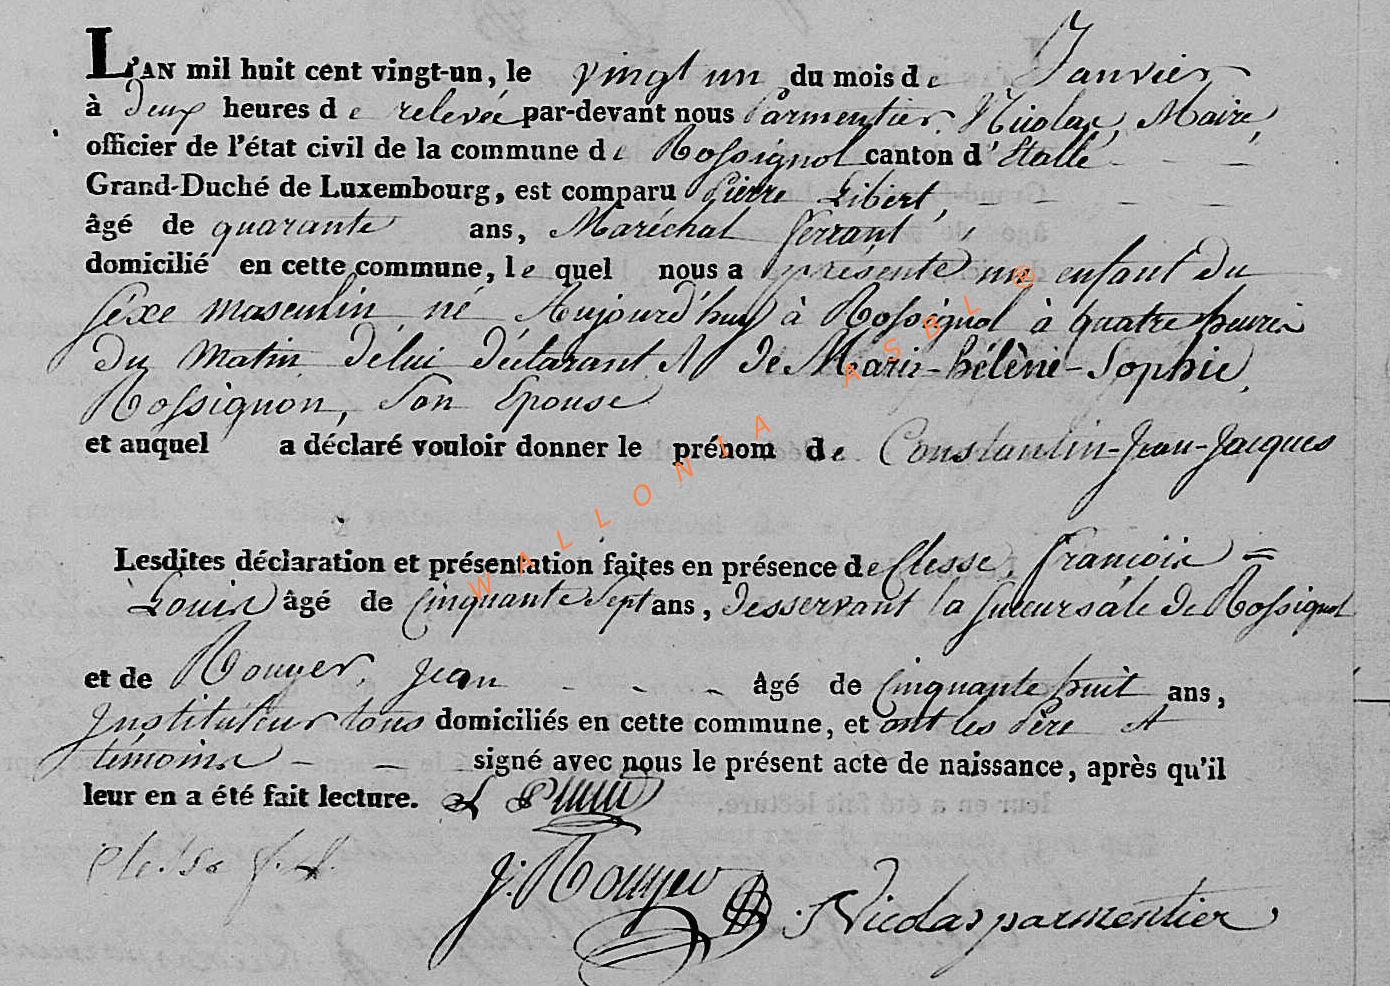 L'AN mil huit cent vingt-un, le vingt un du mois de Janvier,
à deux heures de relevée par-devant nous Parmentier, Nicolas, Maire,
officier de l'état civil de la commune de Rossignol canton d'Etalle
Grand-Duché de Luxembourg, est comparu Pierre Libert,
âgé de quarante ans, Maréchal ferrant,
domicilié en cette commune, le quel nous a présenté un enfant du
séxe masculin né Aujourd'huy à Rossignol à quatre heures
du matin de lui déclarant et de Marie-hélène-Sophie,
Rossignon, Son Epouse
et auquel a déclaré vouloir donner le prénom de Constantin-Jean-Jacques
Lesdites déclaration et présentation faites en présence de Clesse, françois =
Louis âgé de Cinquante Sept ans, desservant la succursale de Rossignol
et de Rouyer, Jean - - - âgé de Cinquante huit ans,
Instituteur tous domiciliés en cette commune, et ont les Père et
témoins - - signé avec nous le présent acte de naissance, après qu'il
leur en a été fait lecture.
Clesse f. L.
J. Rouyer
Nicolas parmentier
WALLONIA ASBL ©